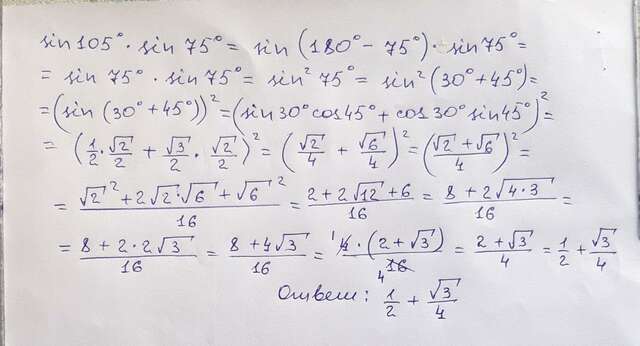 sin105°· sin 75° = sin (180° - 75°)· sin75° =
= sin 75° · sin 75° = sin² 75° = sin² (30° + 45°) =
= (sin (30° + 45°))² = (sin30° cos45° + cos30° sin45°)² =
= (1/2 · √2/2 + √3/2 · √2/2)² = (√2/4 + √6/4)² = ((√2 + √6)/4)² =
= (√2² + 2√2·√6 + √6²)/16 = (2 + 2√12 + 6)/16 = (8 + 2√(4·3))/16 =
= (8 + 2·2√3)/16 = (8 + 4√3)/16 = (¹4·(2 + √3))/₄16 = (2 + √3)/4 = 1/2 + √3/4
Ответ: 1/2 + √3/4